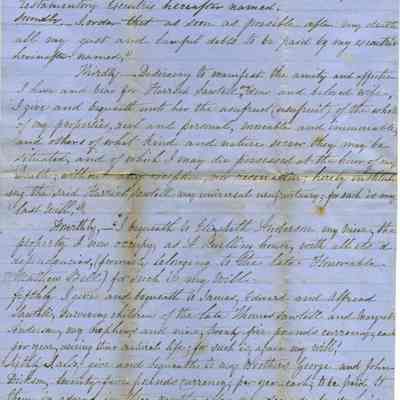 testamentary Executrix hereafter named.
Secondly - I order that as soon as possible after my death
all my just and lawful debts to be paid by my executrix
hereinafter named.
Thirdly - Desireing to manifest the amity and affection
I have and bear for Harriet Sawtell, my and beloved wife,
I give and bequeath unto her the usufruct of the whole
of my properties, real and personal, moveable and immoveable,
and others of what kind and nature soever they may be
situated, and of which I may die possessed at the hour of my
Death, without any exception, nor reservation, hereby instituting
her, the said Harriet Sawtell my universal usufructuary; for such is my
last Will.
Fourthly, - I bequeath to Elizabeth Anderson my niece, the
property I now occupy, as a Dwelling house, with all it's
dependancies, (formerly belonging to the late Honorable
Matthew Bell) for such is my Will.
fifthly I give and bequeath to James, Edward and Alfread
Sawtell, surviving children of the late Thomas Sawtell and Margret
Anderson, my nephews and niece, twenty five pounds currency, each
per year, during their natural life; for such is again my will!
Sixthly I also give and bequeath to my brothers George and John
Dickson, twenty five pounds currency, per year each, to be paid to
them